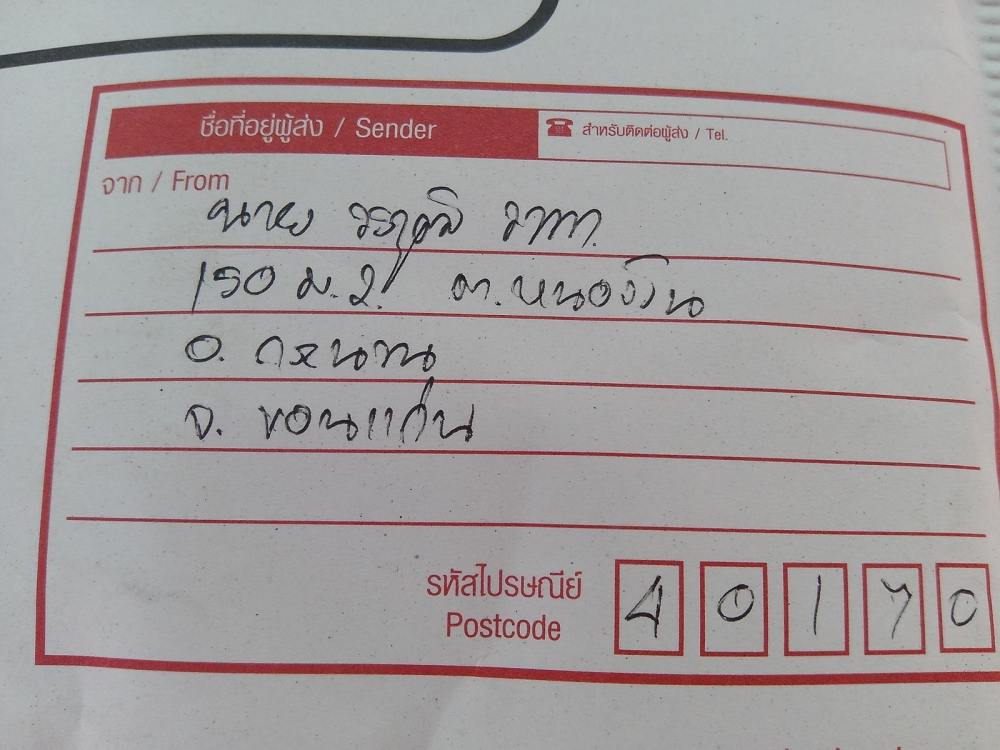 ชื่อที่อยู่ผู้ส่ง / Sender
☎ สำหรับติดต่อผู้ส่ง / Tel.
จาก / From
นาย
150 ม.2. ต.หนองโน
อ. กระนวน
จ. ขอนแก่น
รหัสไปรษณีย์
Postcode
40170